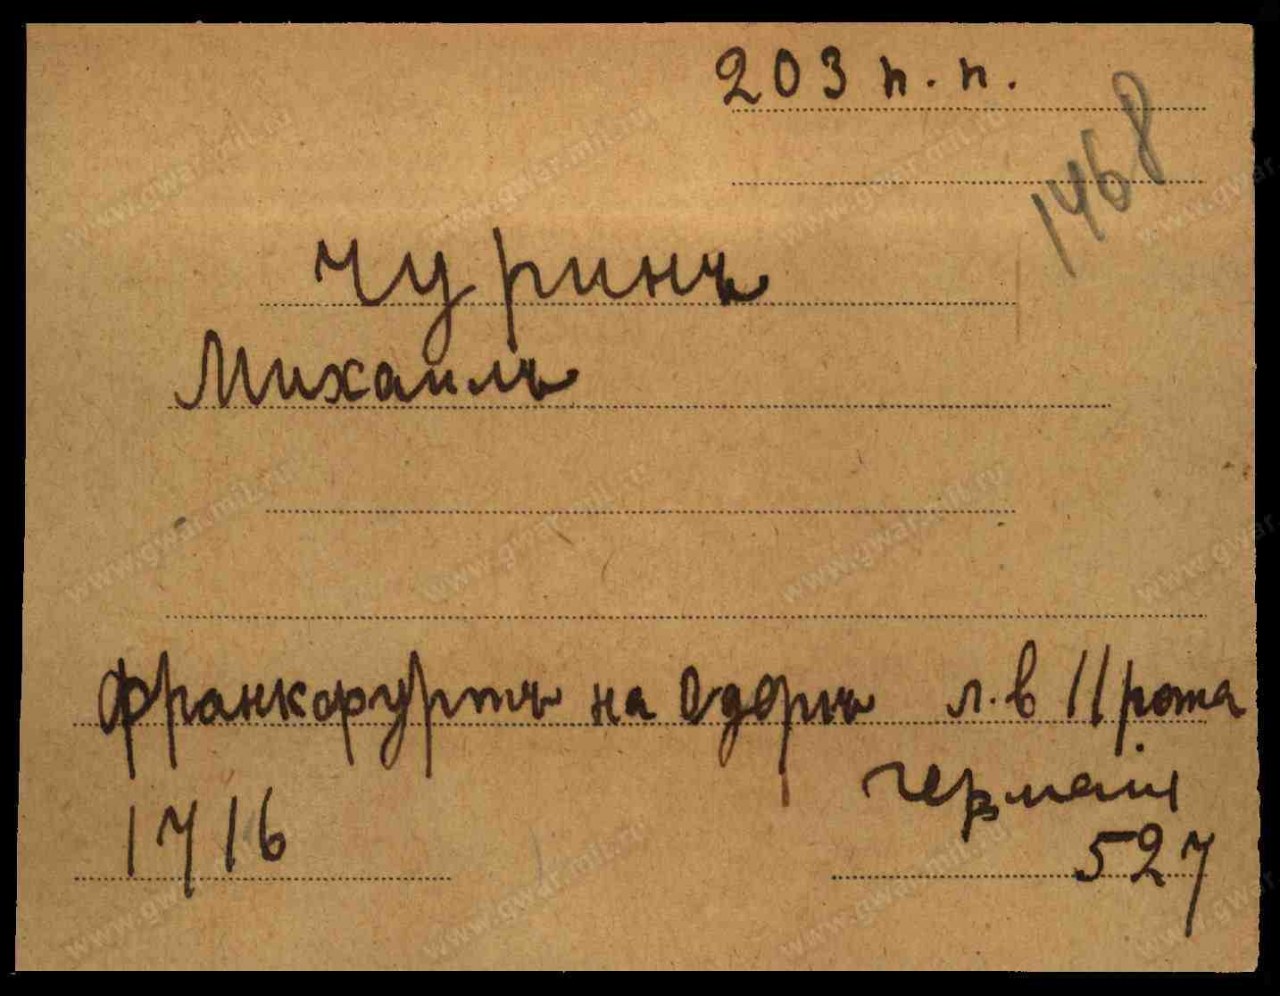 203 п. п.
1468
Чуринъ
Михаилъ
Франкфуртъ на Одеръ л. в 11 рота
Германія
1716
527